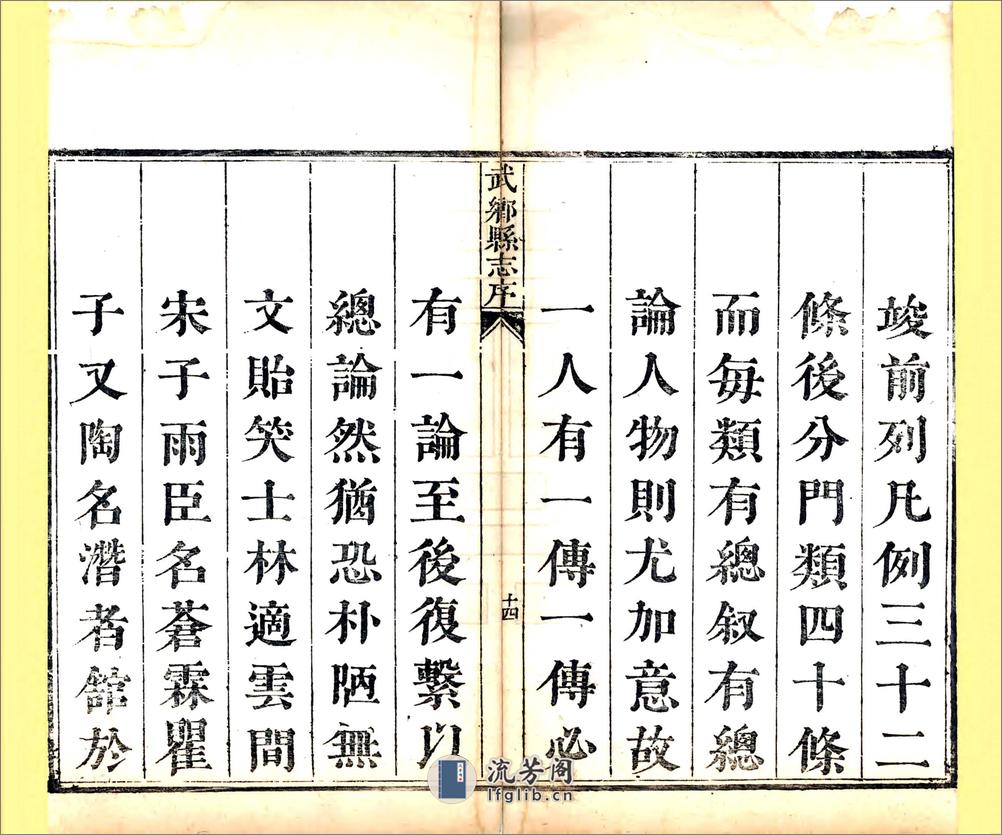 竣前列凡例三十二
條後分門類四十條
而每類有總叙有總
論人物則尤加意故
一人有一傳一傳必
武鄉縣志序
十四
有一論至後復繫以
總論然猶恐朴陋無
文貽笑士林適雲間
宋子雨臣名蒼霖瞿
子又陶名潛者舘於
流芳阁
lfglib.cn